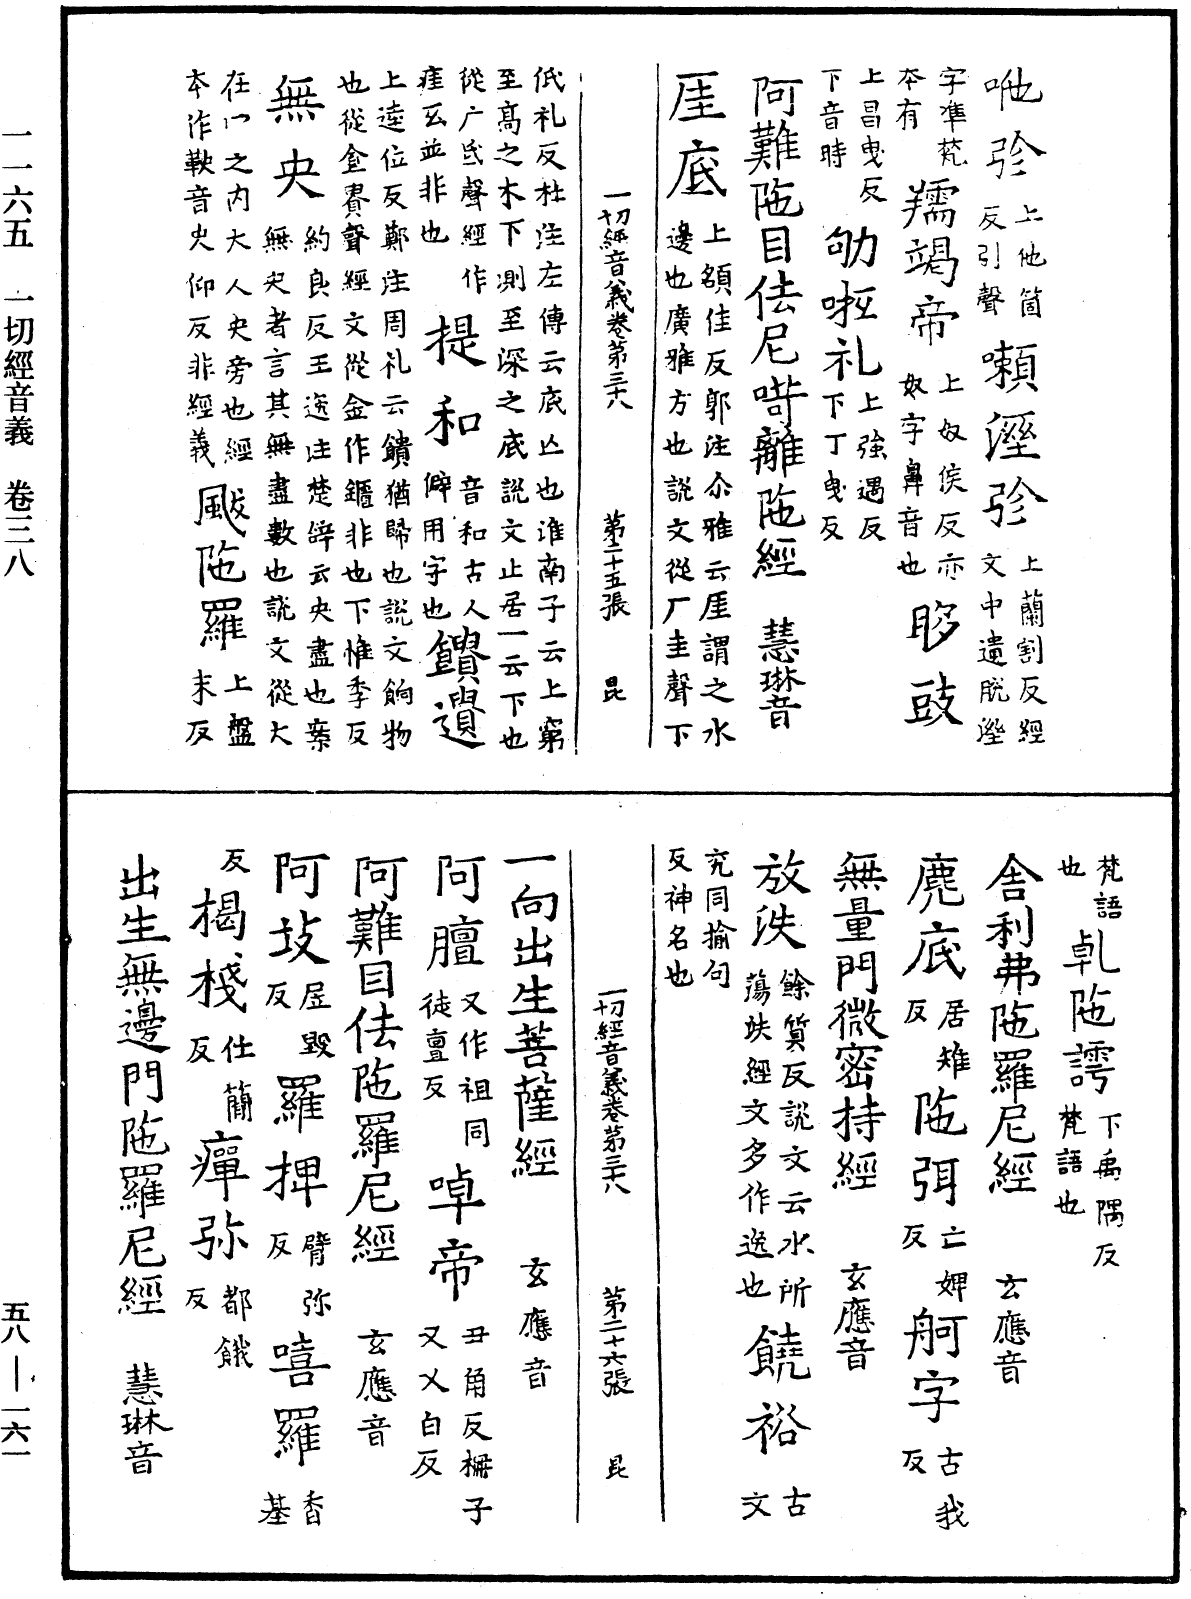 咃㢱上他箇反引聲 嚹溼㢱上蘭割反經文中遺脫溼
字準梵本有 羺竭帝上奴侯反亦奴字鼻音也 眵豉
上昌曳反下音時 㔚㖡礼上強遇反下丁曳反
阿難陁目佉尼呵離陁經 慧琳音
厓底上額佳反郭注尒雅云厓謂之水邊也廣雅方也說文從厂圭聲下
一切經音義卷第三十八 第二十五張 昆
低礼反杜注左傳云底止也淮南子云上窮
至高之木下測至深之底說文止居一云下也
從广氐聲經作㾝並非也 提和音和古人僻用字也 饋遺
上逵位反鄭注周礼云饋猶歸也說文餉物
也從食貴聲經文從金作鐀非也下惟季反
無央約良反王逸注楚辭云央盡也案無央者言其無盡數也說文從大
在冂之內大人央旁也經本作鞅音央仰反非經義 颰陁羅上盤末反
梵語也 乹陁謣下禹隅反梵語也
舍利弗陁羅尼經 玄應音
麂底居雉反 陁弭亡婢反 舸字古我反
無量門微密持經 玄應音
放泆餘質反說文云水所蕩泆經文多作逸也 饒裕古文
㳘同揄句反神名也
一切經音義卷第三十八 第二十六張 昆
一向出生菩薩經 玄應音
阿膻又作袒同徒亶反 啅帝丑角反楋子又乂白反
阿難目佉陁羅尼經 玄應音
阿㩻居毀反 羅捭臂弥反 嘻羅香基
反 楬棧仕簡反 癉弥都餓反
出生無邊門陁羅尼經 慧琳音
一一六五 一切經音義 卷三八
五八—一六一